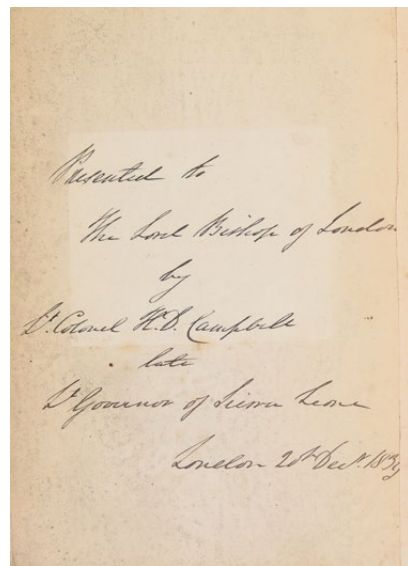 Presented to
The Lord Bishop of London
by
Lt. Colonel H. D. Campbell
late
Lt Governor of Sierra Leone
London 20th Decr. 1839